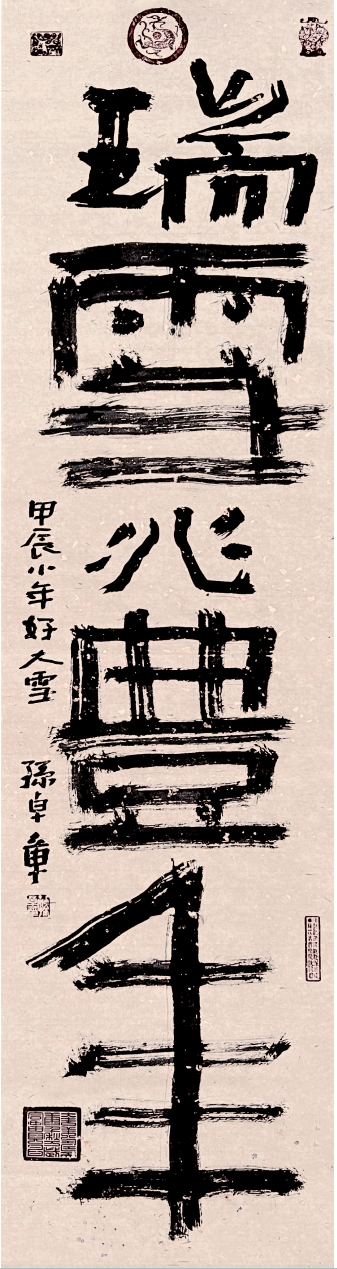 瑞雪兆豐年
甲辰小年好大雪 孫卓章